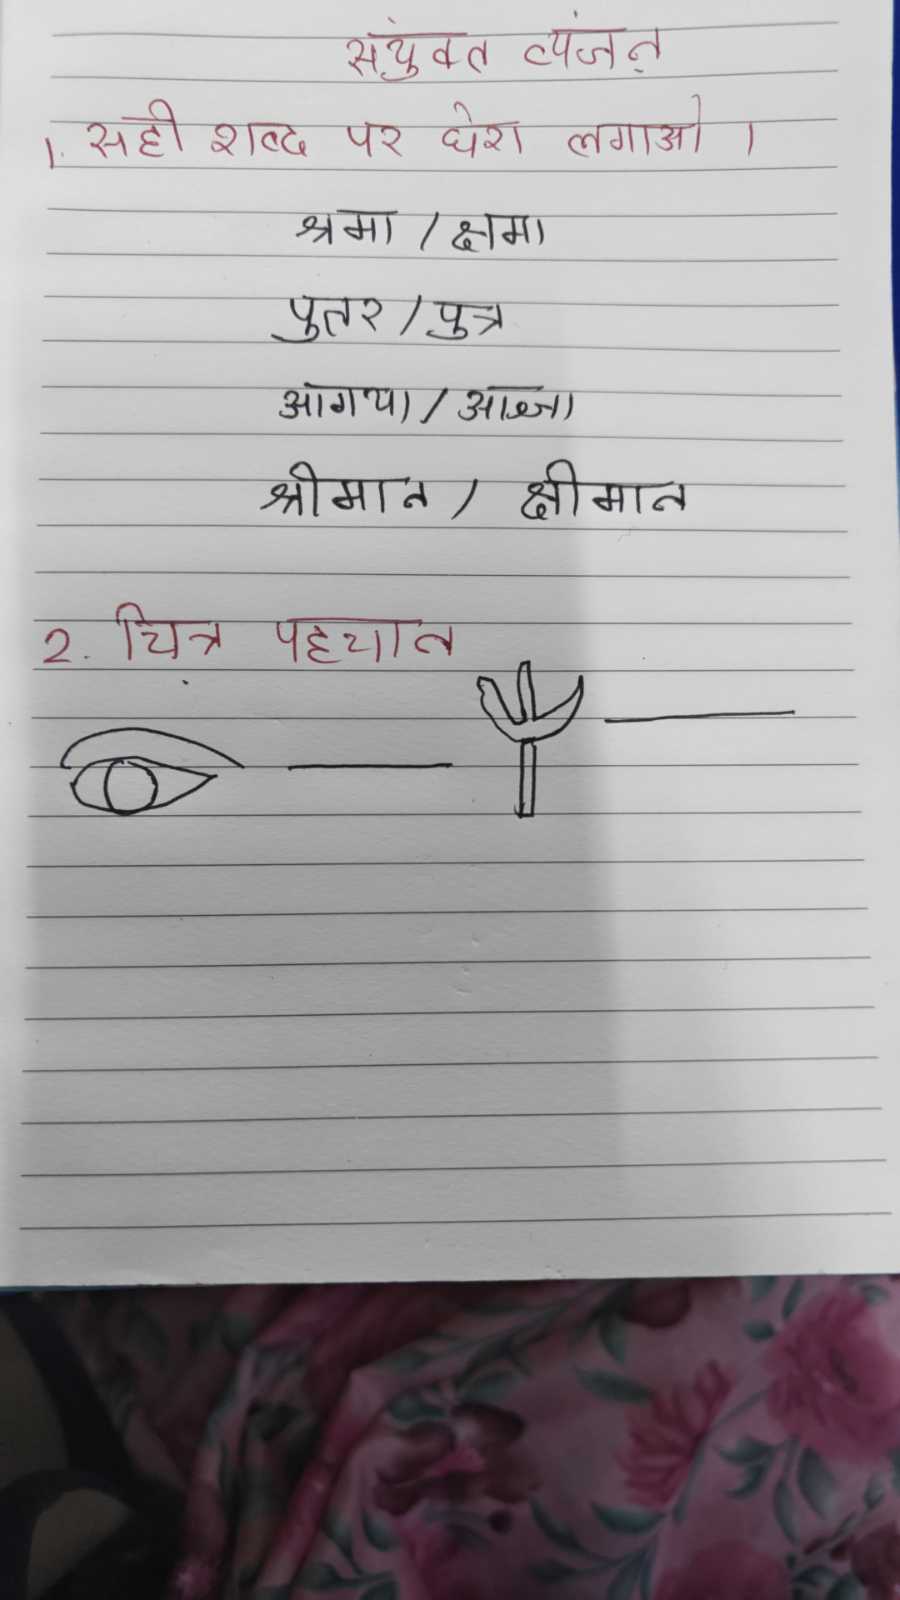 संयुक्त व्यंजन
1. सही शब्द पर घेरा लगाओ ।
श्रमा / क्षमा
पुतर / पुत्र
आगया / आज्ञा
श्रीमान / क्षीमान
2. चित्र पहचान